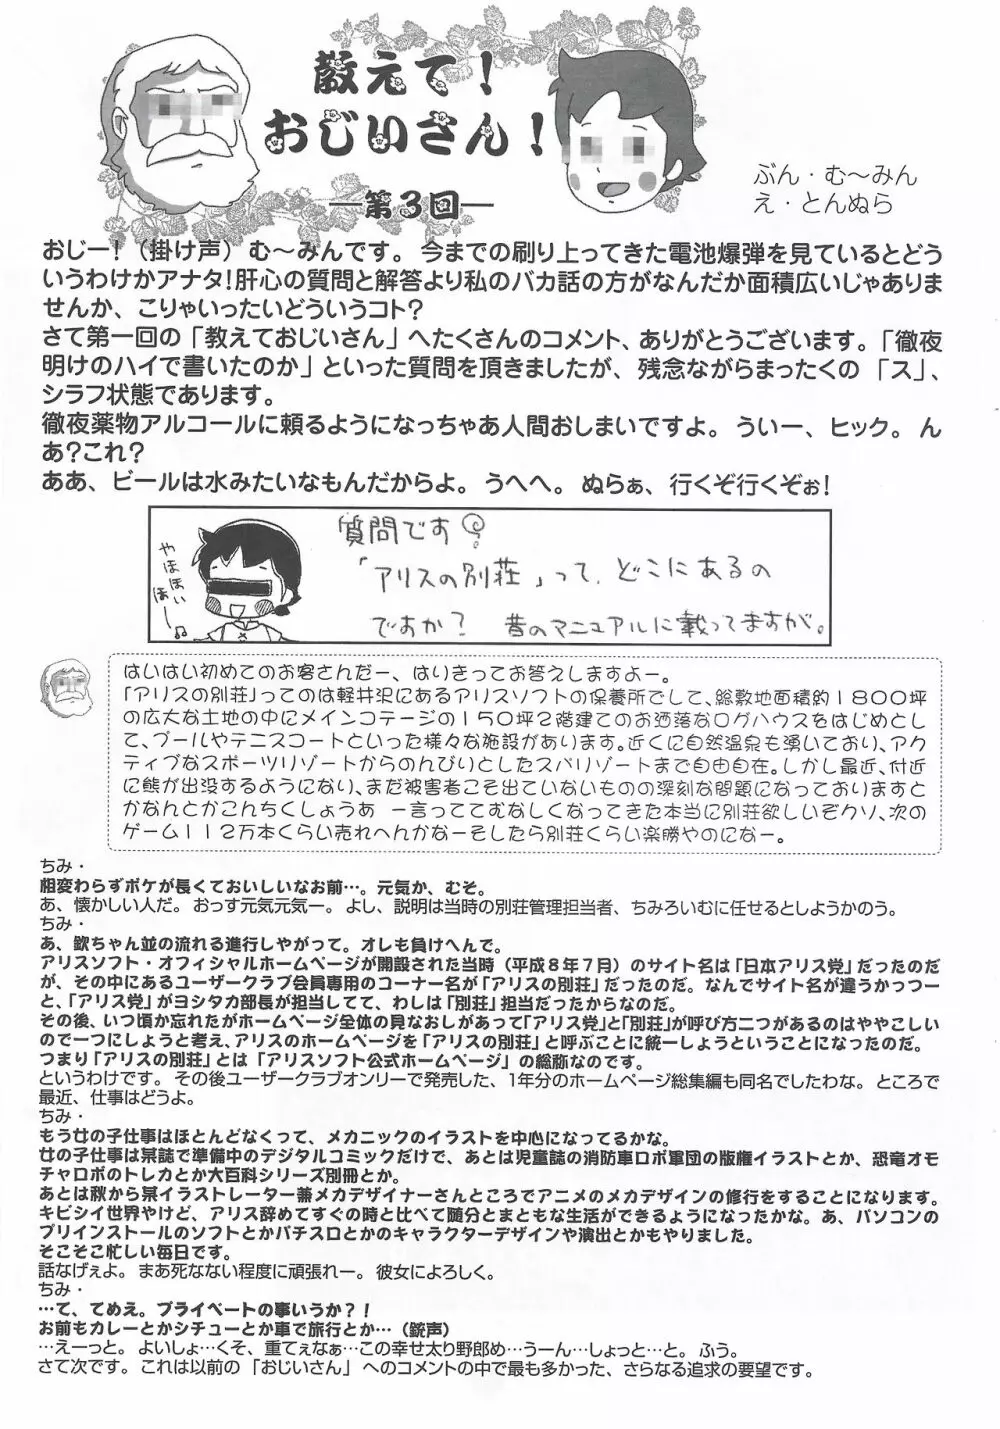 教えて！
おじいさん！
―第３回―
ぶん・む～みん
え・とんぬら
おじー！（掛け声）む～みんです。今までの刷り上ってきた電池爆弾を見ているとどう
いうわけかアナタ！肝心の質問と解答より私のバカ話の方がなんだか面積広いじゃありま
せんか、こりゃいったいどういうコト？
さて第一回の「教えておじいさん」へたくさんのコメント、ありがとうございます。「徹夜
明けのハイで書いたのか」といった質問を頂きましたが、残念ながらまったくの「ス」、
シラフ状態であります。
徹夜薬物アルコールに頼るようになっちゃあ人間おしまいですよ。ういー、ヒック。ん
あ？これ？
ああ、ビールは水みたいなもんだからよ。うへへ。ぬらぁ、行くぞ行くぞぉ！
やほほいほー♫
質問です？
「アリスの別荘」って、どこにあるの
ですか？　昔のマニュアルに載ってますが。
はいはい初めてのお客さんだー、はいきってお答えしますよー。
「アリスの別荘」ってのは軽井沢にあるアリスソフトの保養所でして、総敷地面積約１８００坪
の広大な土地の中にメインコテージの１５０坪２階建てのお洒落なログハウスをはじめとし
て、プールやテニスコートといった様々な施設があります。近くに自然温泉も湧いており、アク
ティブなスポーツリゾートからのんびりとしたスパリゾートまで自由自在。しかし最近、付近
に熊が出没するようになり、まだ被害者こそ出ていないものの深刻な問題になっておりますと
かなんとかこんちくしょうあ　一言っててむなしくなってきた本当に別荘欲しいぞクソ、次の
ゲーム１１２万本くらい売れへんかなーそしたら別荘くらい楽勝やのになー。
ちみ・
相変わらずボケが長くておいしいなお前…。元気か、むそ。
あ、懐かしい人だ。おっす元気元気ー。よし、説明は当時の別荘管理担当者、ちみろいむに任せるとしようかのう。
ちみ・
あ、欽ちゃん並の流れる進行しやがって。オレも負けへんで。
アリスソフト・オフィシャルホームページが開設された当時（平成８年７月）のサイト名は「日本アリス党」だったのだ
が、その中にあるユーザークラブ会員専用のコーナー名が「アリスの別荘」だったのだ。なんでサイト名が違うかっつー
と、「アリス党」がヨシタカ部長が担当してて、わしは「別荘」担当だったからなのだ。
その後、いつ頃か忘れたがホームページ全体の見なおしがあって「アリス党」と「別荘」が呼び方二つがあるのはややこしい
ので一つにしようと考え、アリスのホームページを「アリスの別荘」と呼ぶことに統一しようということになったのだ。
つまり「アリスの別荘」とは「アリスソフト公式ホームページ」の総称なのです。
というわけです。その後ユーザークラブオンリーで発売した、1年分のホームページ総集編も同名でしたわな。ところで
最近、仕事はどうよ。
ちみ・
もう女の子仕事はほとんどなくって、メカニックのイラストを中心になってるかな。
女の子仕事は某誌で準備中のデジタルコミックだけで、あとは児童誌の消防車ロボ軍団の版権イラストとか、恐竜オモ
チャロボのトレカとか大百科シリーズ別冊とか。
あとは秋から某イラストレーター兼メカデザイナーさんところでアニメのメカデザインの修行をすることになります。
キビシイ世界やけど、アリス辞めてすぐの時と比べて随分とまともな生活ができるようになったかな。あ、パソコンの
プリインストールのソフトとかパチスロとかのキャラクターデザインや演出とかもやりました。
そこそこ忙しい毎日です。
話なげぇよ。まあ死なない程度に頑張れー。彼女によろしく。
ちみ・
…て、てめえ。プライベートの事いうか？！
お前もカレーとかシチューとか車で旅行とか…（銃声）
…えーっと。よいしょ…くそ、重てぇなぁ…この幸せ太り野郎め…うーん…しょっと…と。ふう。
さて次です。これは以前の「おじいさん」へのコメントの中で最も多かった、さらなる追求の要望です。